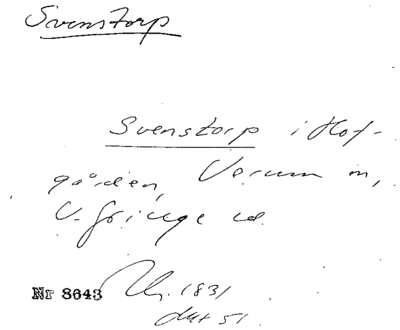 Svenstorp
Svenstorp i Hof-
gården, Verum sn,
V. Göinge hd
Nr 8643
1831
dat 51